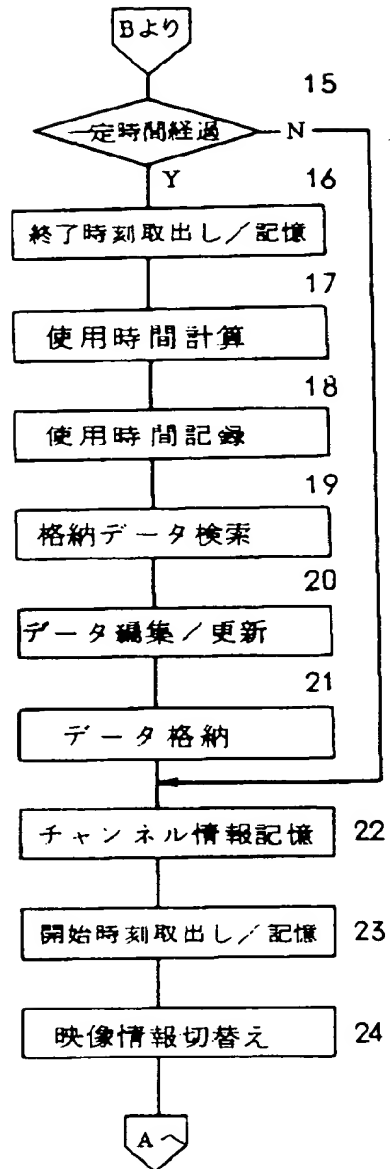 Bより
15
一定時間経過 N
Y
16
終了時刻取出し／記憶
17
使用時間計算
18
使用時間記録
19
格納データ検索
20
データ編集／更新
21
データ格納
チャンネル情報記憶 22
開始時刻取出し／記憶 23
映像情報切替え 24
Aへ